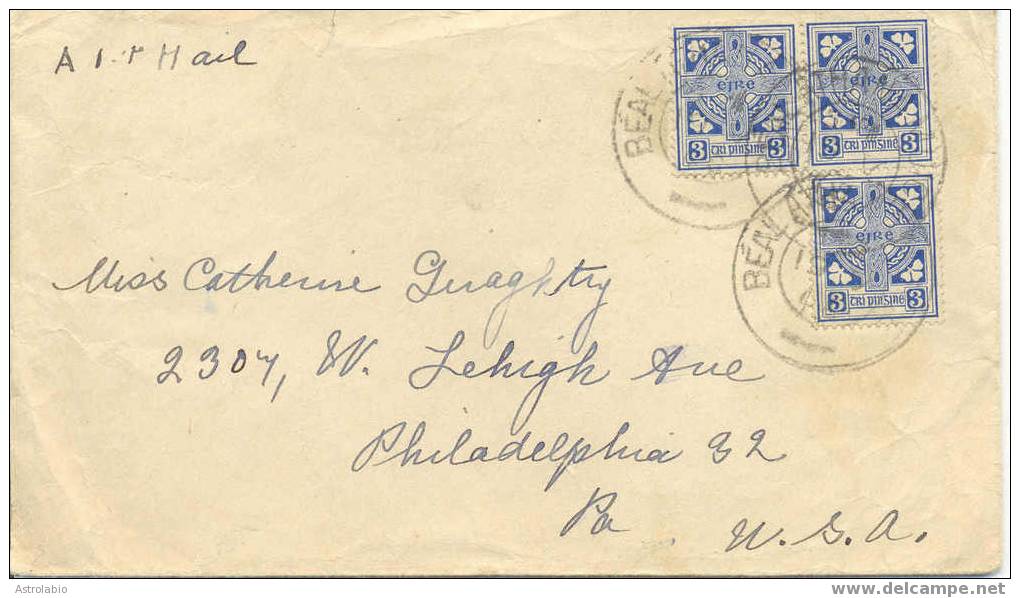 Air Mail
éire
3 trí pinsine 3
éire
3 trí pinsine 3
BÉAL
BÉAL
éire
3 trí pinsine 3
Miss Catherine Guaghty
2307, W. Lehigh Ave
Philadelphia 32
Pa U.S.A.
Astrolabio
www.delcampe.net